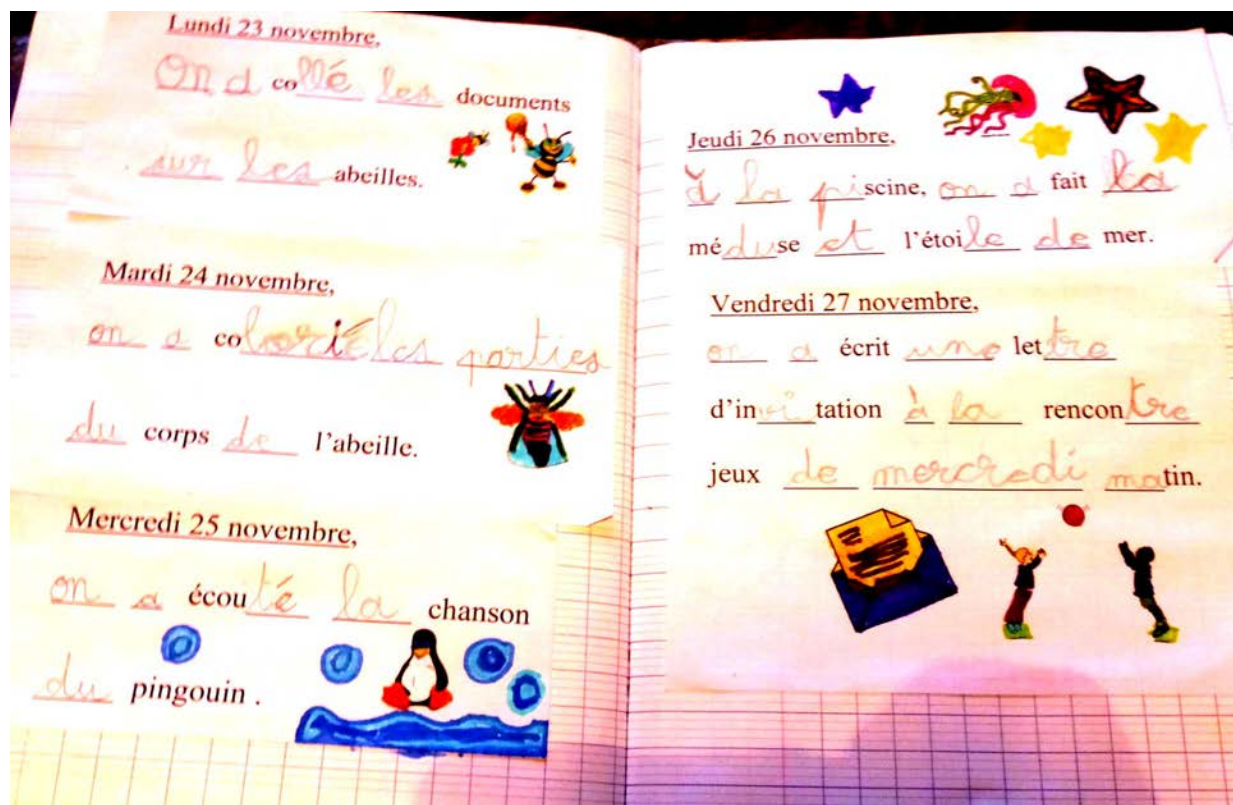 Lundi 23 novembre,
On a collé les documents
sur les abeilles.
Mardi 24 novembre,
on a colorié les parties
du corps de l'abeille.
Mercredi 25 novembre,
on a écouté la chanson
du pingouin .
Jeudi 26 novembre,
à la piscine, on a fait la
méduse et l'étoile de mer.
Vendredi 27 novembre,
on a écrit une lettre
d'invitation à la rencontre
jeux de mercredi matin.